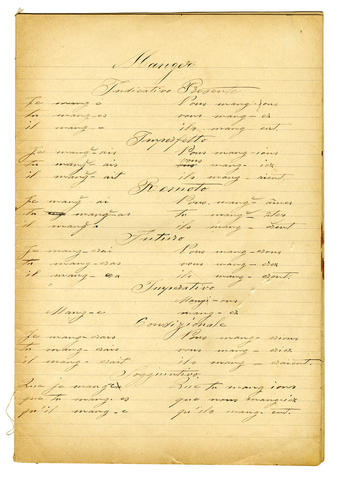 Manger
Indicativo Presente
Je mang-e Nous mang-eons
tu mang-es vous mang-ez
il mang-e ils mang-ent.
Imperfetto
Je mang-ais Nous mang-ions
tu mang-ais vous mang-iez
il mang-ait ils mang-aient.
Remoto
Je mang-ai Nous mang-âmes
tu mang-as tu mang-âtes
il mang-a ils mang-èrent
Futuro
Je mang-erai Nous mang-erons
tu mang-eras vous mang-erez
il mang-era ils mang-eront.
Imperativo
Mang-ons
Mang-e mang-ez
Condizionale
Je mang-erais Nous mang-erions
tu mang-erais vous mang-eriez
il mang-erait ils mang-eraient.
Soggiuntivo
Que je mange Que tu mang ions
que tu mang-es que vous mangiez
qu'il mang-e qu'ils mang-ent.